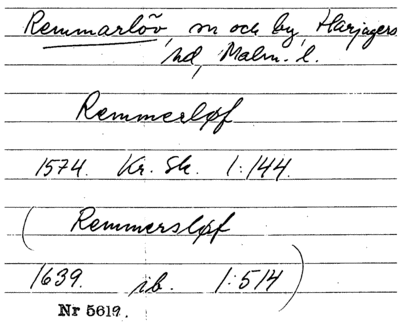 Remmarlöv, sn och by, Harjagers
hd, Malm. l.
Remmerløf
1574. Kr. Sk. 1:144.
(Remmersløf
1639. ib. 1:514)
Nr 5619.